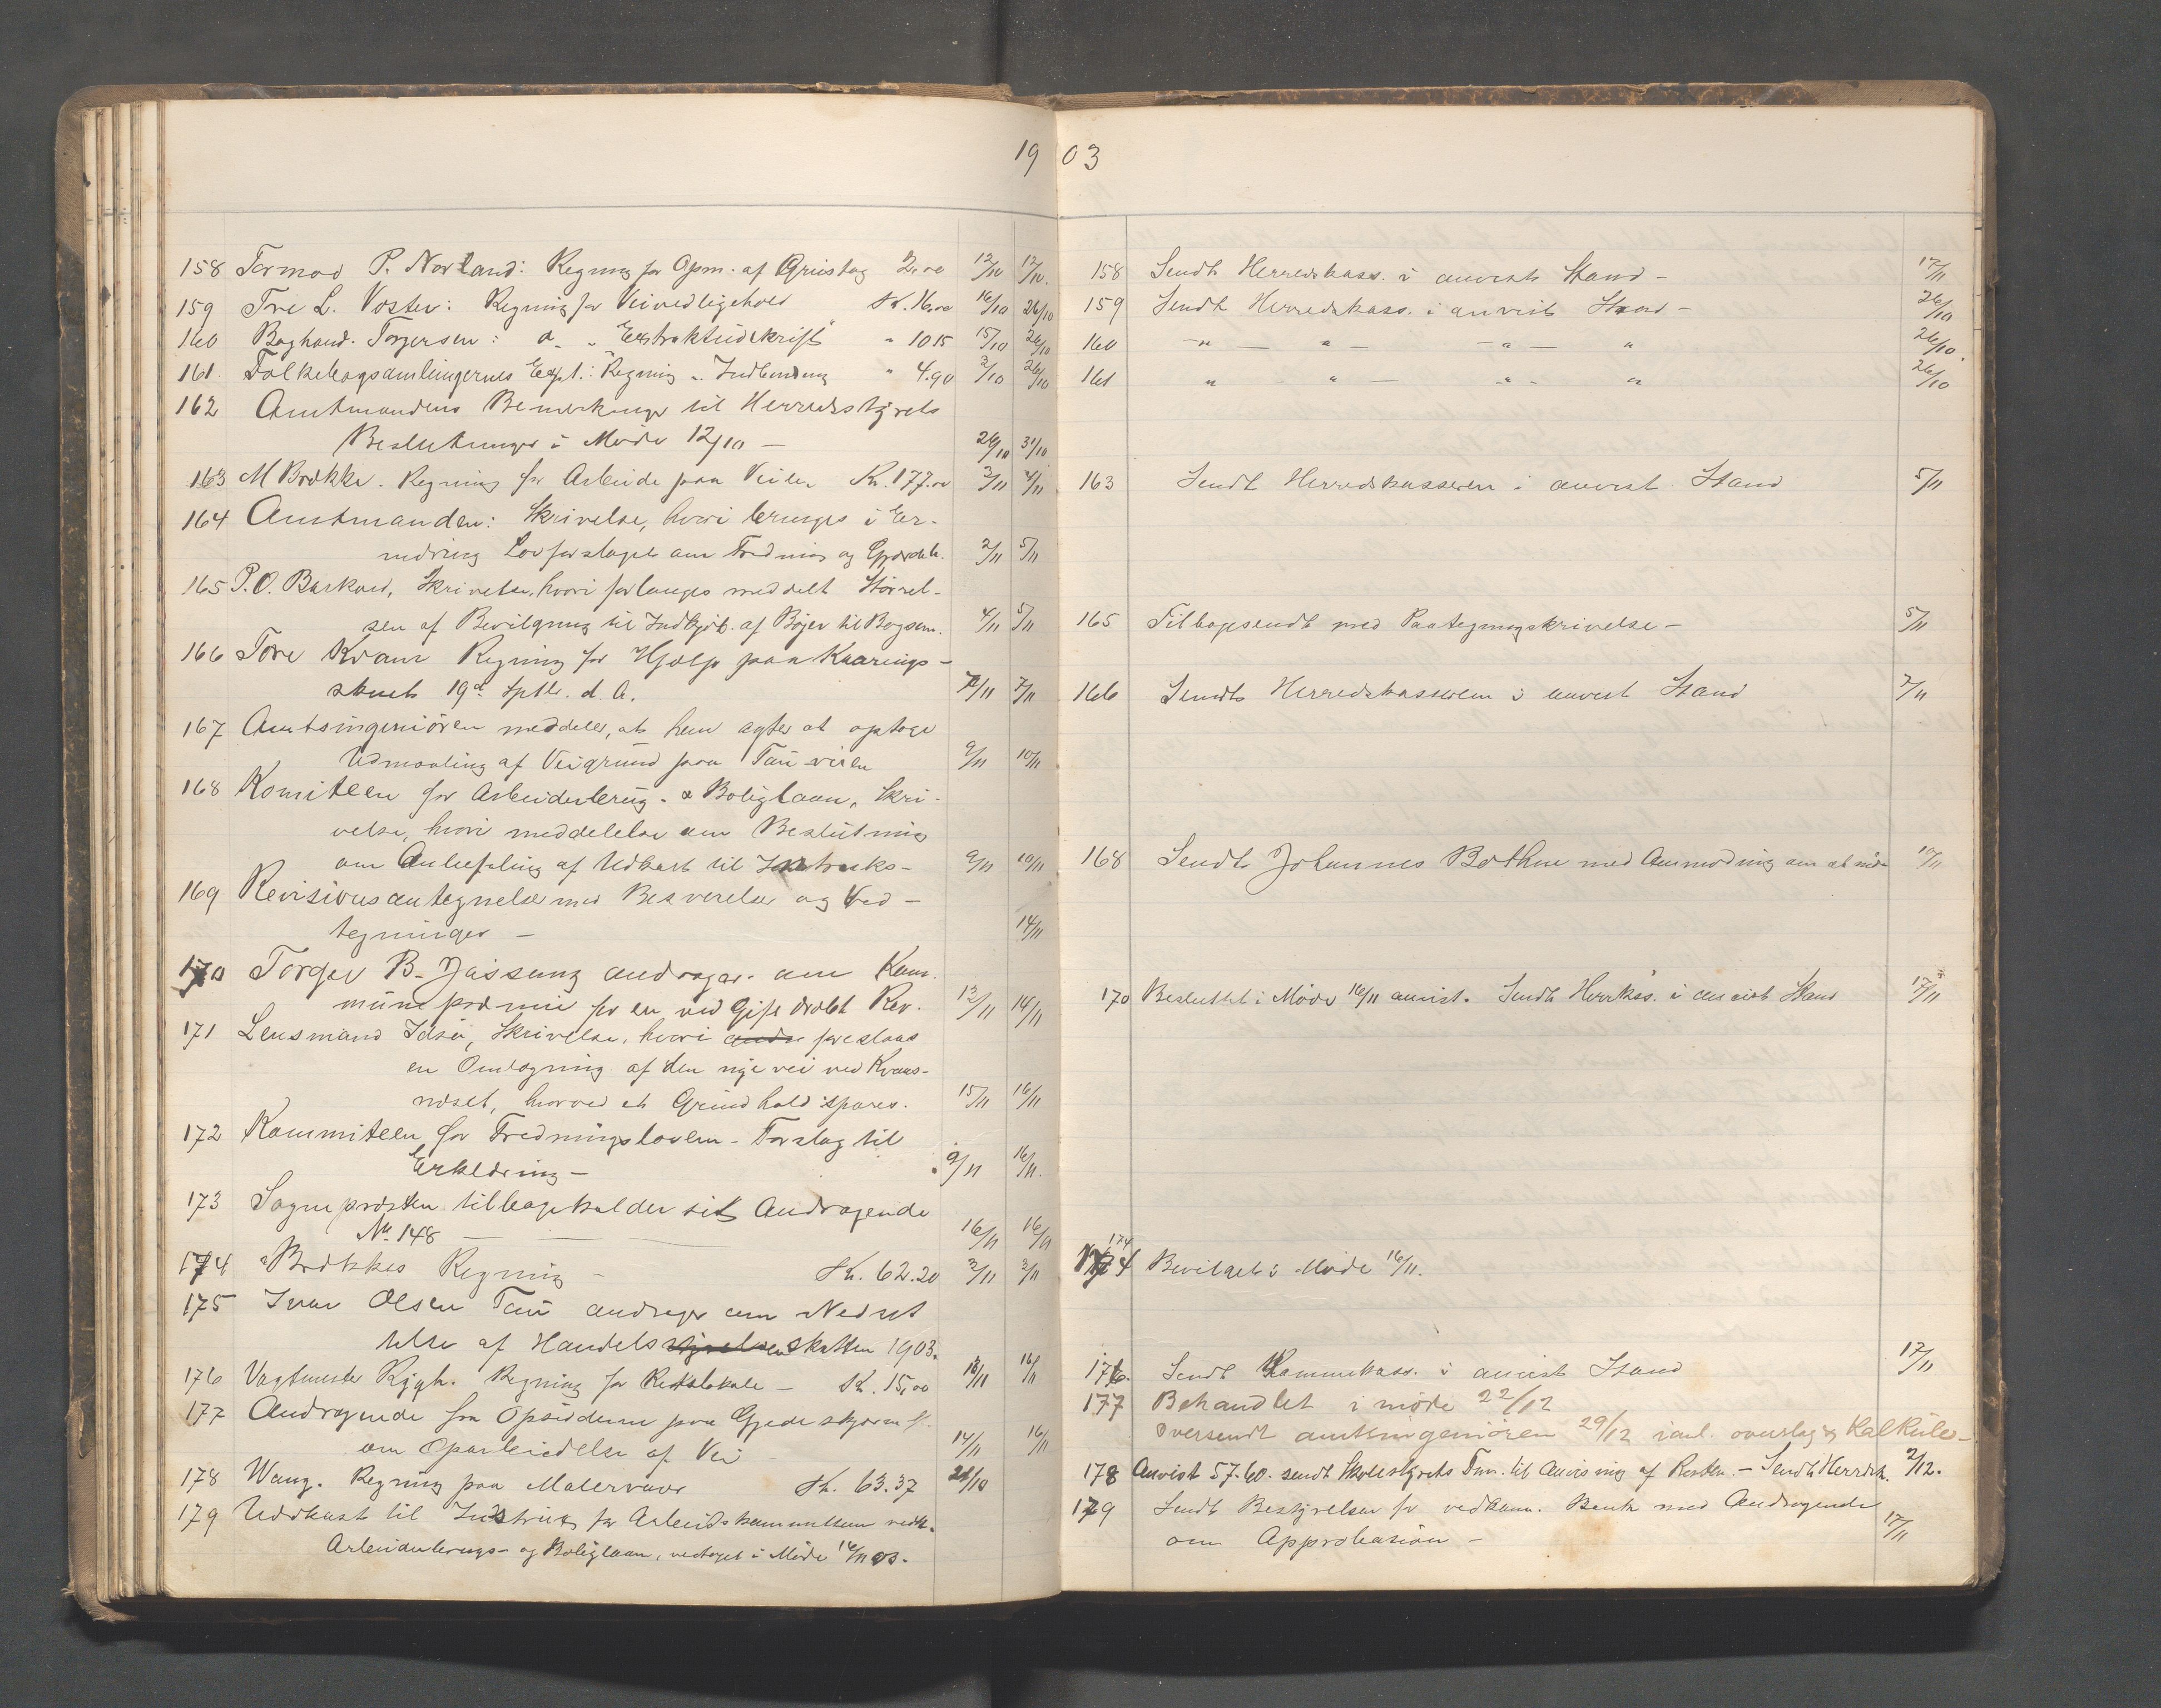 1903
158 Tormod P. Norland: Regning for Opm. af Grustag 2,00 12/10 12/10.
159 Tore L. Voster: Regning for Veivedligehold Kr. 16,00 16/10 26/10
160 Boghand. Torgersen: a „ Extraktudskrift " 10 15 15/10 26/10
161. Folkebogsamlingernes Expt.: Regning „ Indbinding " 4.90 2/10 26/10
162 Amtmandens Bemerkninger til Herredsstyrets
Beslutninger i Møde 12/10 — 26/10 31/10
163 M Brække. Regning for Arbeide paa Veien Kr. 177.00 3/11 4/11
164 Amtmanden: Skrivelse, hvori bringes i Er-
indring Lovforslaget om Fredning og 2/11 5/11
165 P.O. Barkved, Skrivelse, hvori forlanges meddelt Størrel-
sen af Bevilgning til Indkjøb af Bøger til Bogsam. 4/11 5/11
166 Tore Kvam Regning for Hjælp paa Kaarings-
skuet 19de Septbr. d. A. 7/11 7/11
167 Amtsingeniøren meddeler, at han agter at optage
Udmaaling af Veigrund paa Tau-veien 9/11 10/11
168 Komiteen for Arbeiderbrug- & Boliglaan, Skri-
velse, hvori meddelelse om Beslutning
om Anbefaling af Udkast til Instruks- 9/11 10/11
169 Revisionsantegnelser med Besvarelse og Ved-
tegninger — 14/11
170 Torger B. Jøssang andrager om Kom-
munepræmie for en ved Gift dræbt Rev. 12/11 14/11
171 Lensmand Idsø, Skrivelse, hvori foreslaaes
en Omlægning af den nye vei ved Kvams-
næset, hvorved et Grindhold spares. 15/11 16/11
172 Kommiteen for Fredningsloven - Forslag til
Erklæring — 9/11 16/11.
173 Sognepræsten tilbagekalder sit Andragende
No. 148 — 16/11 16/11
174 Brækkes Regning — Kr. 62.20 3/11 3/11
175 Ivar Olsen Tau andrager om Nedsæt
telse af Handelsskatten 1903.
176 Vagtmester Rygh. Regning for Retslokale — Kr. 15,00 13/11 16/11
177 Andragende fra Opsidderne paa
om Oparbeidelse af Vei 14/11 16/11
178 Wang. Regning paa Malervare Kr. 63.37 28/10
179 Udkast til Instrux for Arbeidskommiteen vedk.
Arbeiderbrugs- og Boliglaan, vedtaget i Møde 16/11 03.
158 Sendt Herredskass. i anvist Stand — 12/11
159 Sendt Herredskass. i anvist Stand — 26/10
160 —"— " —"— " 26/10.
161 " " — " - " 26/10
163 Sendt Herredskasseren i anvist Stand 5/11
165 Tilbagesendt med Paategningsskrivelse — 5/11
166 Sendt Herredskasseren i anvist Stand 7/11
168 Sendt Johannes Bøthun med Anmodning om at møde 10/11
170 Besluttet i Møde 16/11 anvist. Sendt Herrkss. i anvist Stand 17/11
174 Bevilget i Møde 16/11.
176. Sendt Kommekass. i anvist Stand 17/11
177 Behandlet i møde 22/12
oversendt amtsingeniøren 29/12 overslag & Kalkule—
178 Anvist 57.60. sendt Skolestyrets Fmn. til Anvisning af Resten. — Sendt Herredsk. 2/12.
179 Sendt Bestyrelsen for vedkom. Bank med Andragende
om Approbasion — 17/11